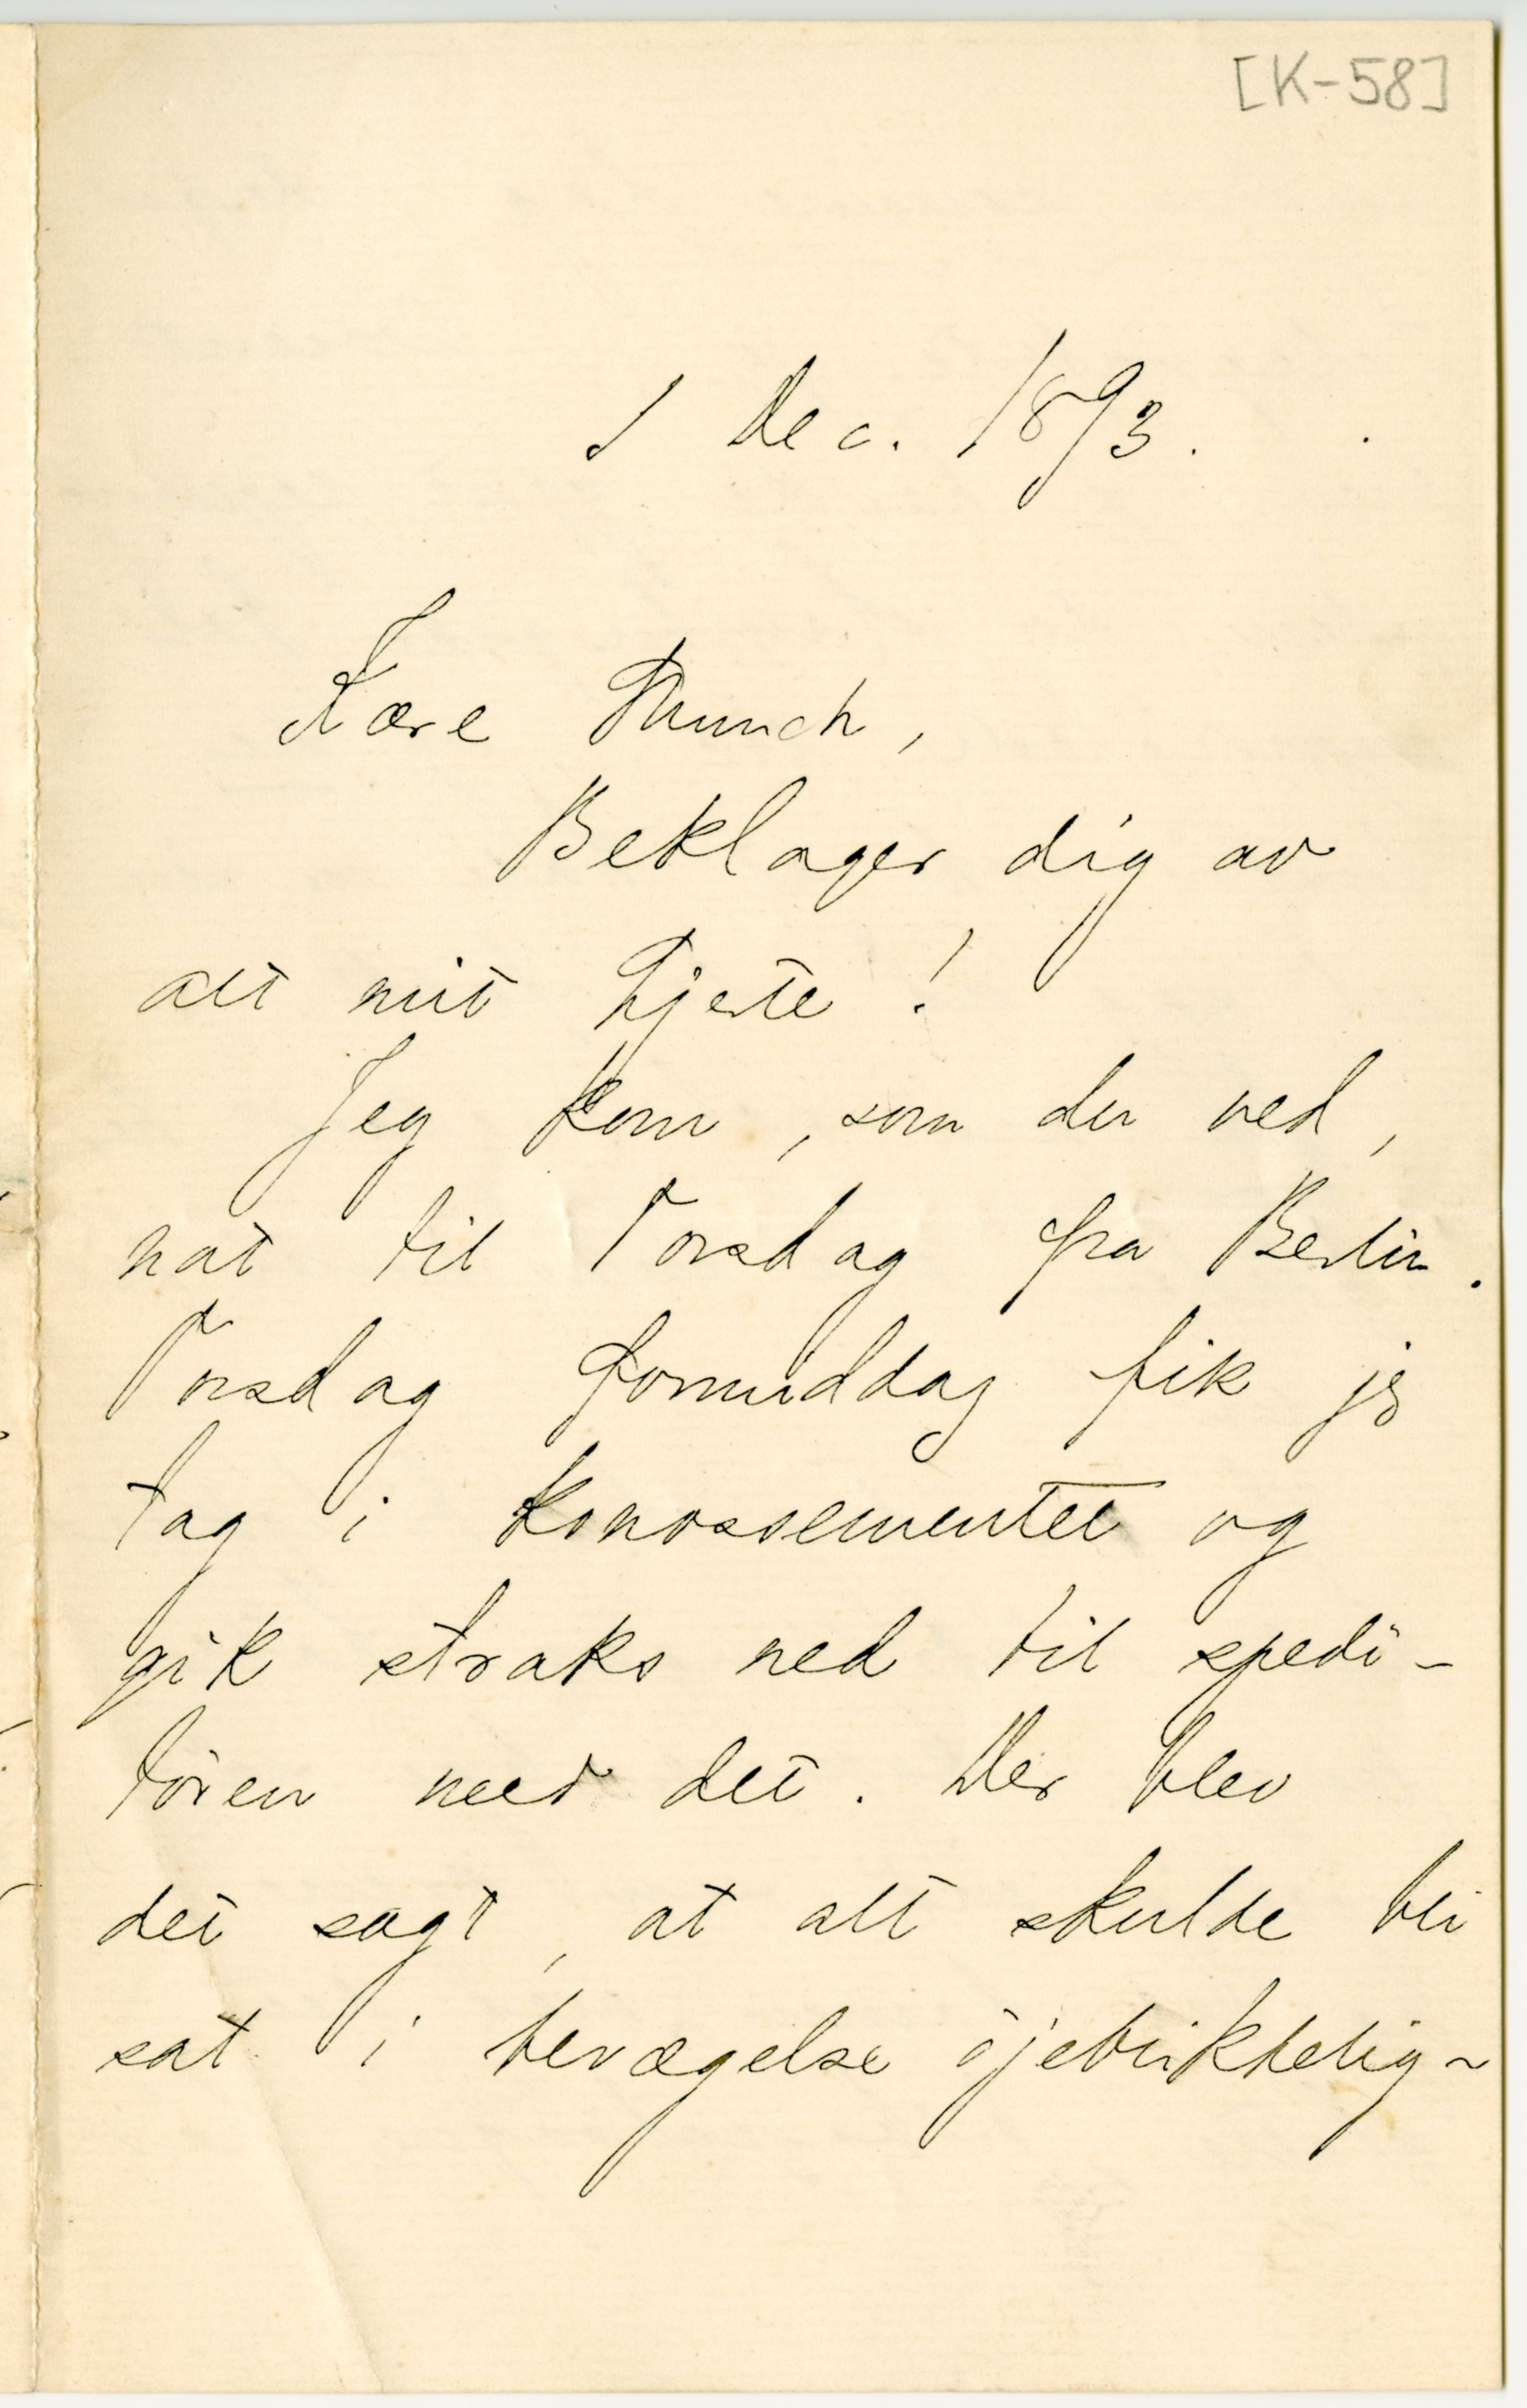 [K-58]
1 Dec. 1893.
Kære Munch,
Beklager dig av
alt mit hjerte!
Jeg kom, som du ved,
nat til Torsdag fra Berlin.
Torsdag formiddag fik jeg
tag i konossementet og
gik straks ned til spedi-
tören med det. Der blev
det sagt, at alt skulde bli
sat i bevægelse öjeblikkelig-